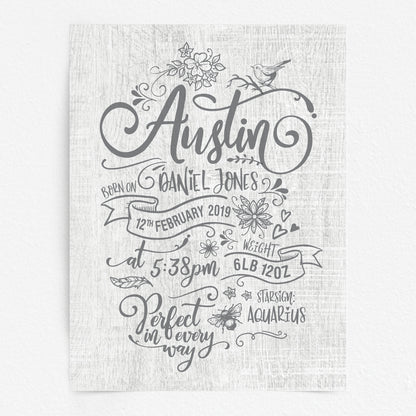 Austin
DANIEL JONES
BORN ON
12TH FEBRUARY 2019
at 5:38pm
WEIGHT
6LB 12OZ
STARSIGN:
AQUARIUS
Perfect
in every
way